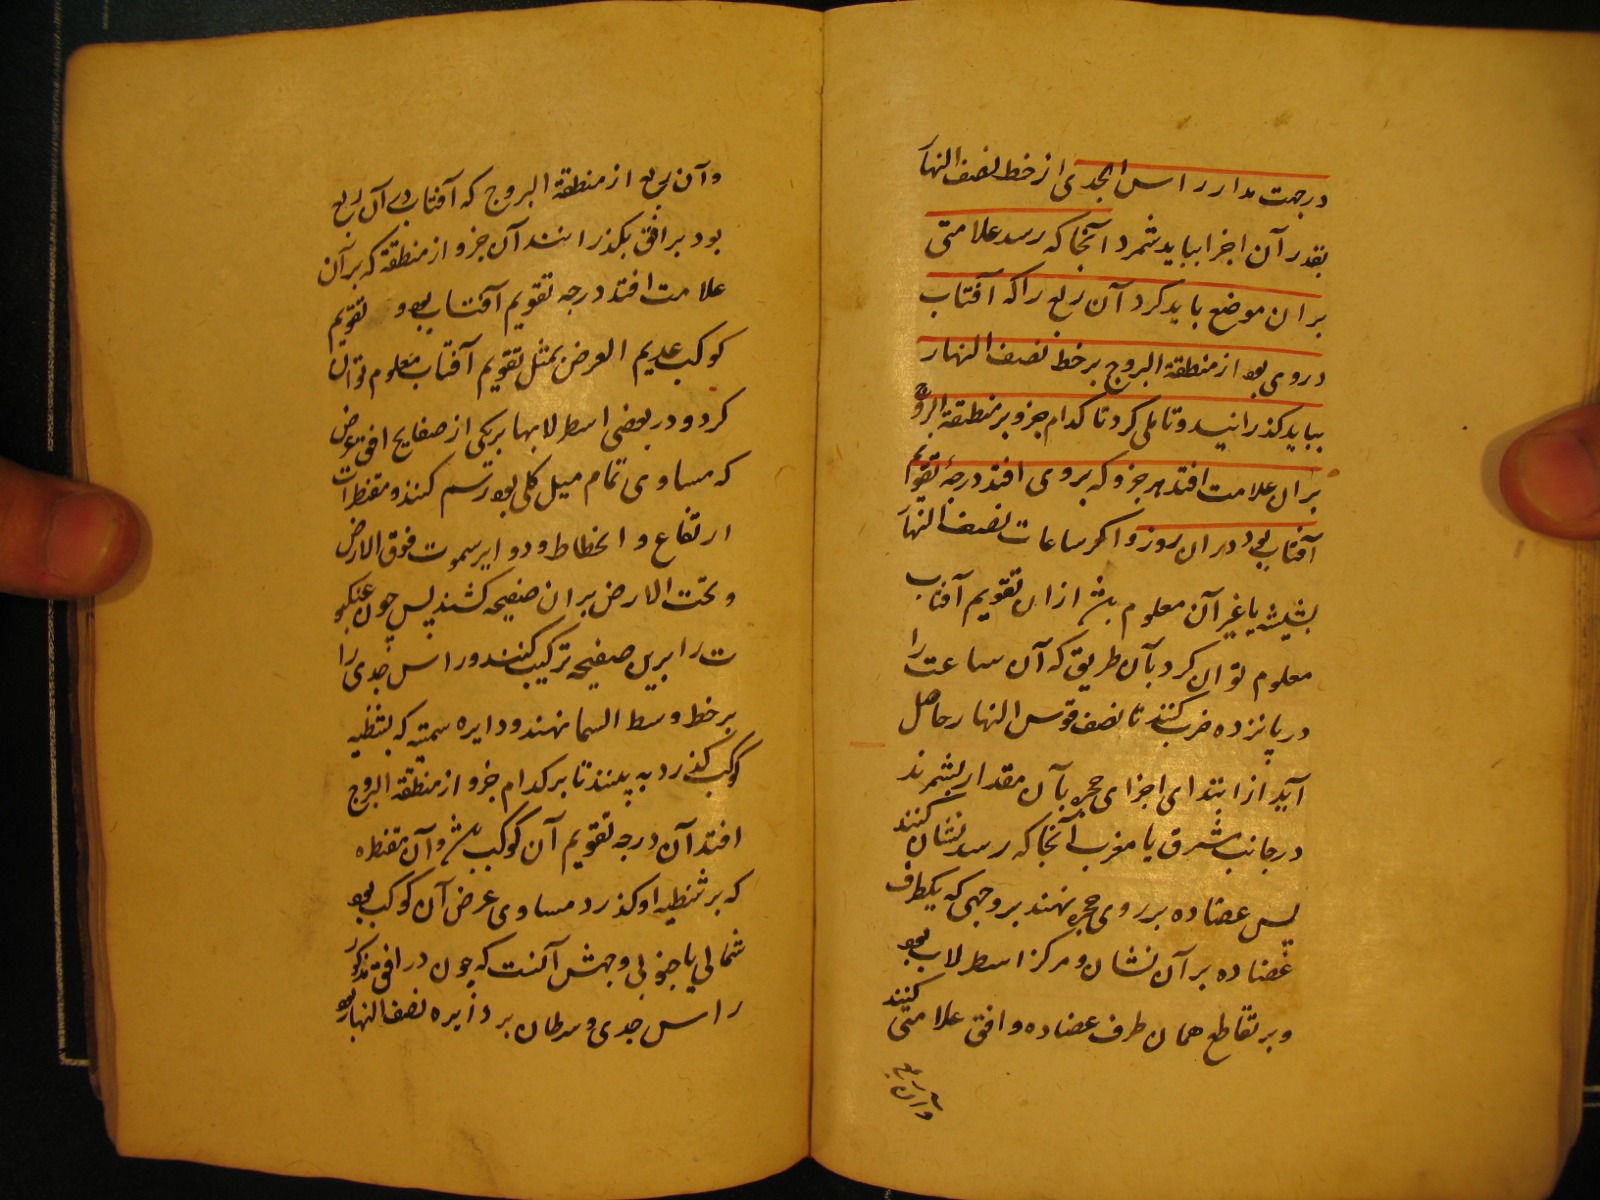 درجهت مدار راس الجدی از خط نصف النهار
بقدر آن اجزا بباید شمرد آنجا که رسد علامتی
بران موضع باید کرد آن ربع را که آفتاب
دروی بود از منطقة البروج بر خط نصف النهار
بباید کذرانید و تاملی کرد تا کدام جزو بر منطقة البروج
بران علامت افتد هر جزو که بروی افتد درجهٔ تقویم
آفتاب بود دران روز و اکر ساعات نصف النهار
بشیشه یا غیر آن معلوم باشد ازان تقویم آفتاب
معلوم توان کرد بآن طریق که آن ساعت را
در پانزده ضرب کنند تا نصف قوس النهار حاصل
آید از ابتدای اجزای حجره بآن مقدار بشمرند
در جانب مشرق یا مغرب آنجا که رسد نشان کنند
پس عضاده بر روی حجره نهند بر وجهی که یکطرف
عضاده بر آن نشان و مرکز اسطرلاب بود
و بر تقاطع همان طرف عضاده و افق علامتی کنند
و آن ربع
و آن ربع از منطقة البروج که آفتاب در آن ربع
بود بر افق بکذرانند آن جزو از منطقة که بر آن
علامت افتد درجه تقویم آفتاب بود و تقویم
کوکب عدیم العرض بمثل تقویم آفتاب معلوم توان
کرد و در بعضی اسطرلابها بر یکی از صفایح افق عرض
که مساوی تمام میل کلی بود رسم کنند و مقنطرات
ارتفاع و انحطاط و دوایر سموت فوق الارض
و تحت الارض بران صفیحه کشند پس چون عنکبو
ت را برین صفیحه ترکیب کنند و راس جدی را
بر خط وسط السما نهند و دایره سمتیه که بشظیه
کوکب کذرد به بینند تا بر کدام جزو از منطقة البروج
افتد آن درجه تقویم آن کوکب باشد و آن مقنطره
که بر شظیه او کذرد مساوی عرض آن کوکب بود
شمالی یا جنوبی وجهش آنست که چون در افق مذکور
راس جدی و سرطان بر دایره نصف النهار بود